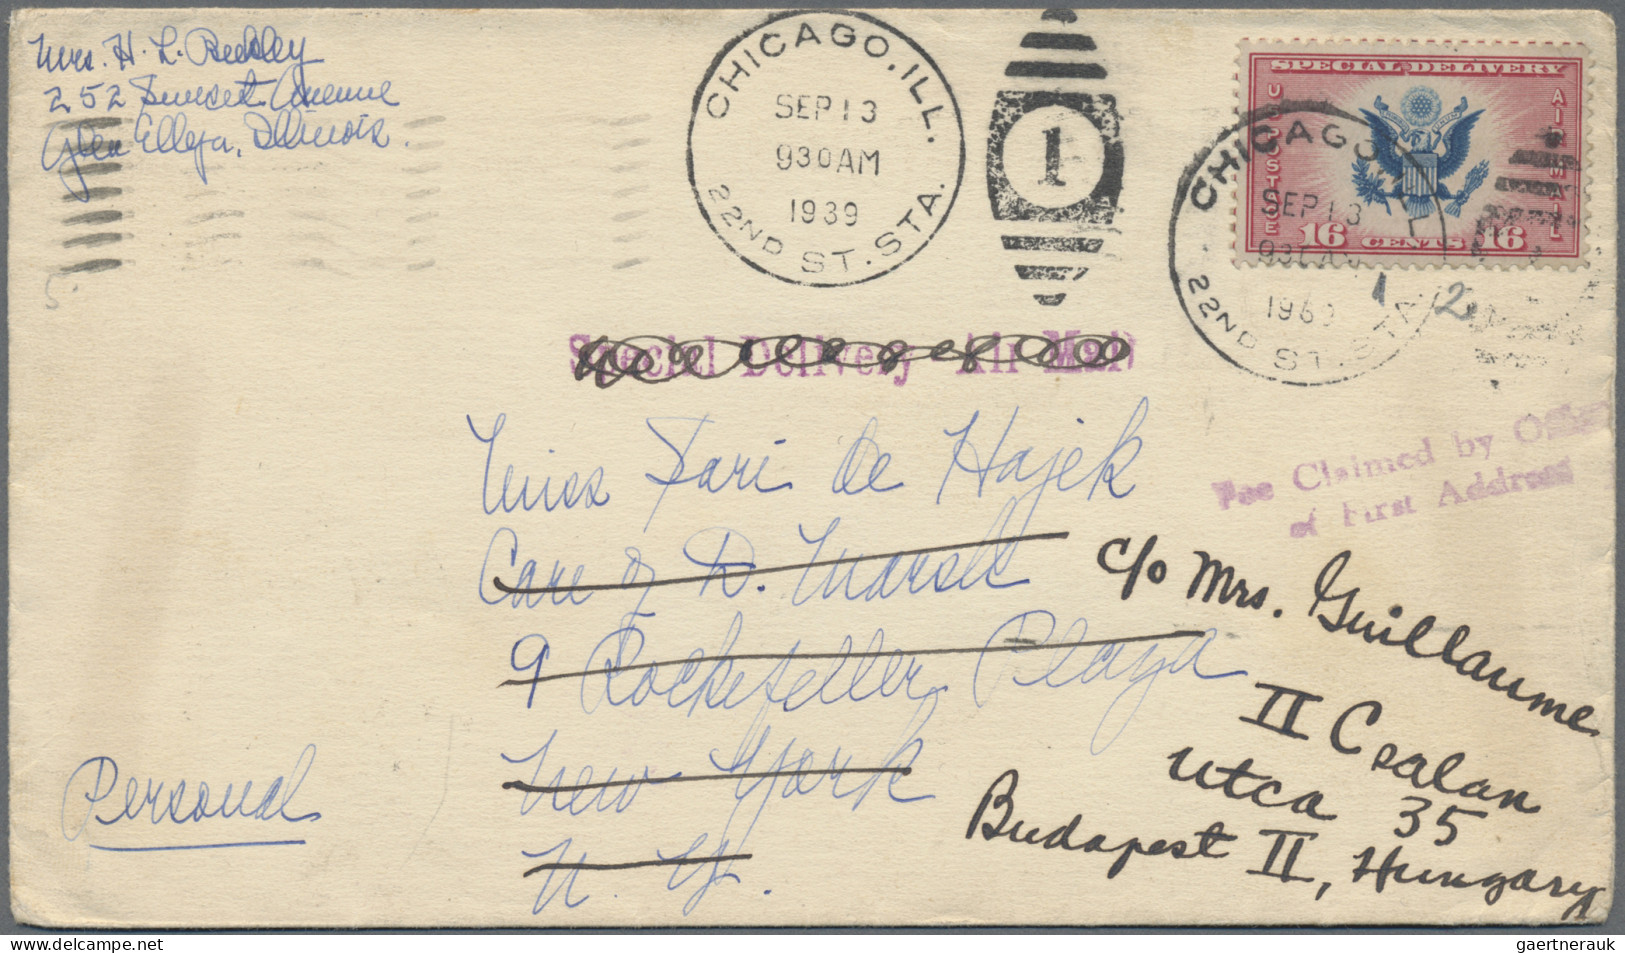 Mrs. H. L.
252 Sunset Avenue
Glen Ellyn, Illinois.
CHICAGO, ILL.
SEP 13
930 AM
1939
22ND ST. STA.
1
SPECIAL DELIVERY
U.S. POSTAGE
AIR MAIL
16 CENTS 16
CHICAGO
SEP 13
22ND ST. STA.
1 2
Special Delivery Air Mail
Fee Claimed by
of First Address
Miss Sari de Hajek
Care of D. Marsh
9 Rockefeller Plaza
New York
N. Y.
c/o Mrs. Guillaume
II Csalan
utca 35
Budapest II, Hungary
Personal
gaertnerauk